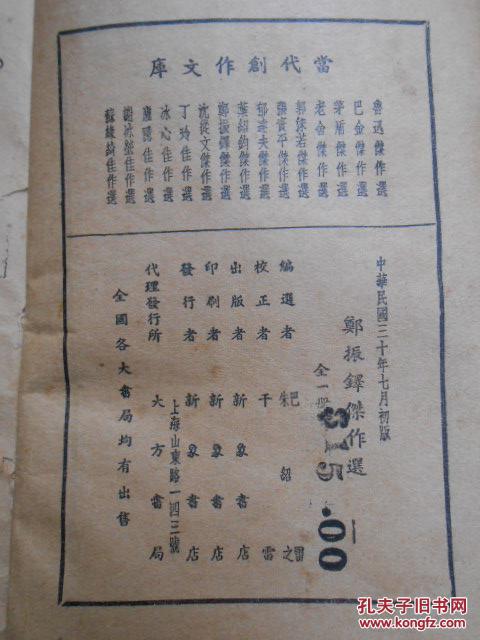 當代創作文庫
魯迅傑作選
巴金傑作選
茅盾傑作選
老舍傑作選
郭沫若傑作選
張資平傑作選
郁達夫傑作選
葉紹鈞傑作選
鄭振鐸傑作選
沈從文傑作選
丁玲佳作選
冰心佳作選
廬隱佳作選
謝冰瑩佳作選
蘇綠綺佳作選
中華民國三十年七月初版
鄭振鐸傑作選
全一册
$15.00
編選者 巴雷 朱紹之
校正者 千雷
出版者 新象書店
印刷者 新象書店
發行者 新象書店
上海山東路一四三號
代理發行所 大方書局
全國各大書局均有出售
孔夫子旧书网
www.kongfz.com